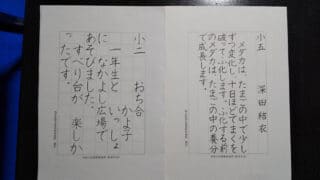 小五 深田結衣
メダカは、たまごの中で少し
ずつ変化し、十日ほどでまくを
破って、ふ化します。ふ化する前
のメダカは、たまごの中の養分
で成長します。
小二 おち合 かよ子
一年生と いっしょ
に なかよし広場で
あそびました。
すべり台が 楽しか
ったです。